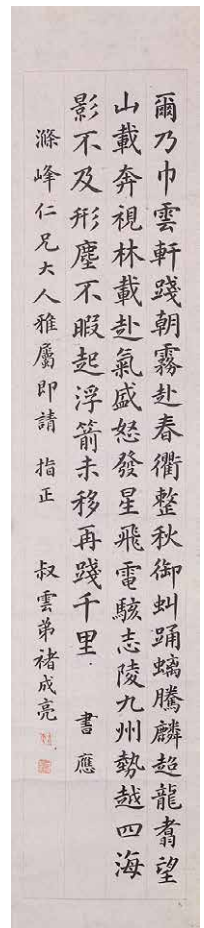 爾乃巾雲軒踐朝霧赴春衢整秋御虯踊螭騰麟超龍翥望
山載奔視林載赴氣盛怒發星飛電駭志陵九州勢越四海
影不及形塵不暇起浮箭未移再踐千里 書應
滌峰仁兄大人雅屬即請 指正 叔雲弟褚成亮